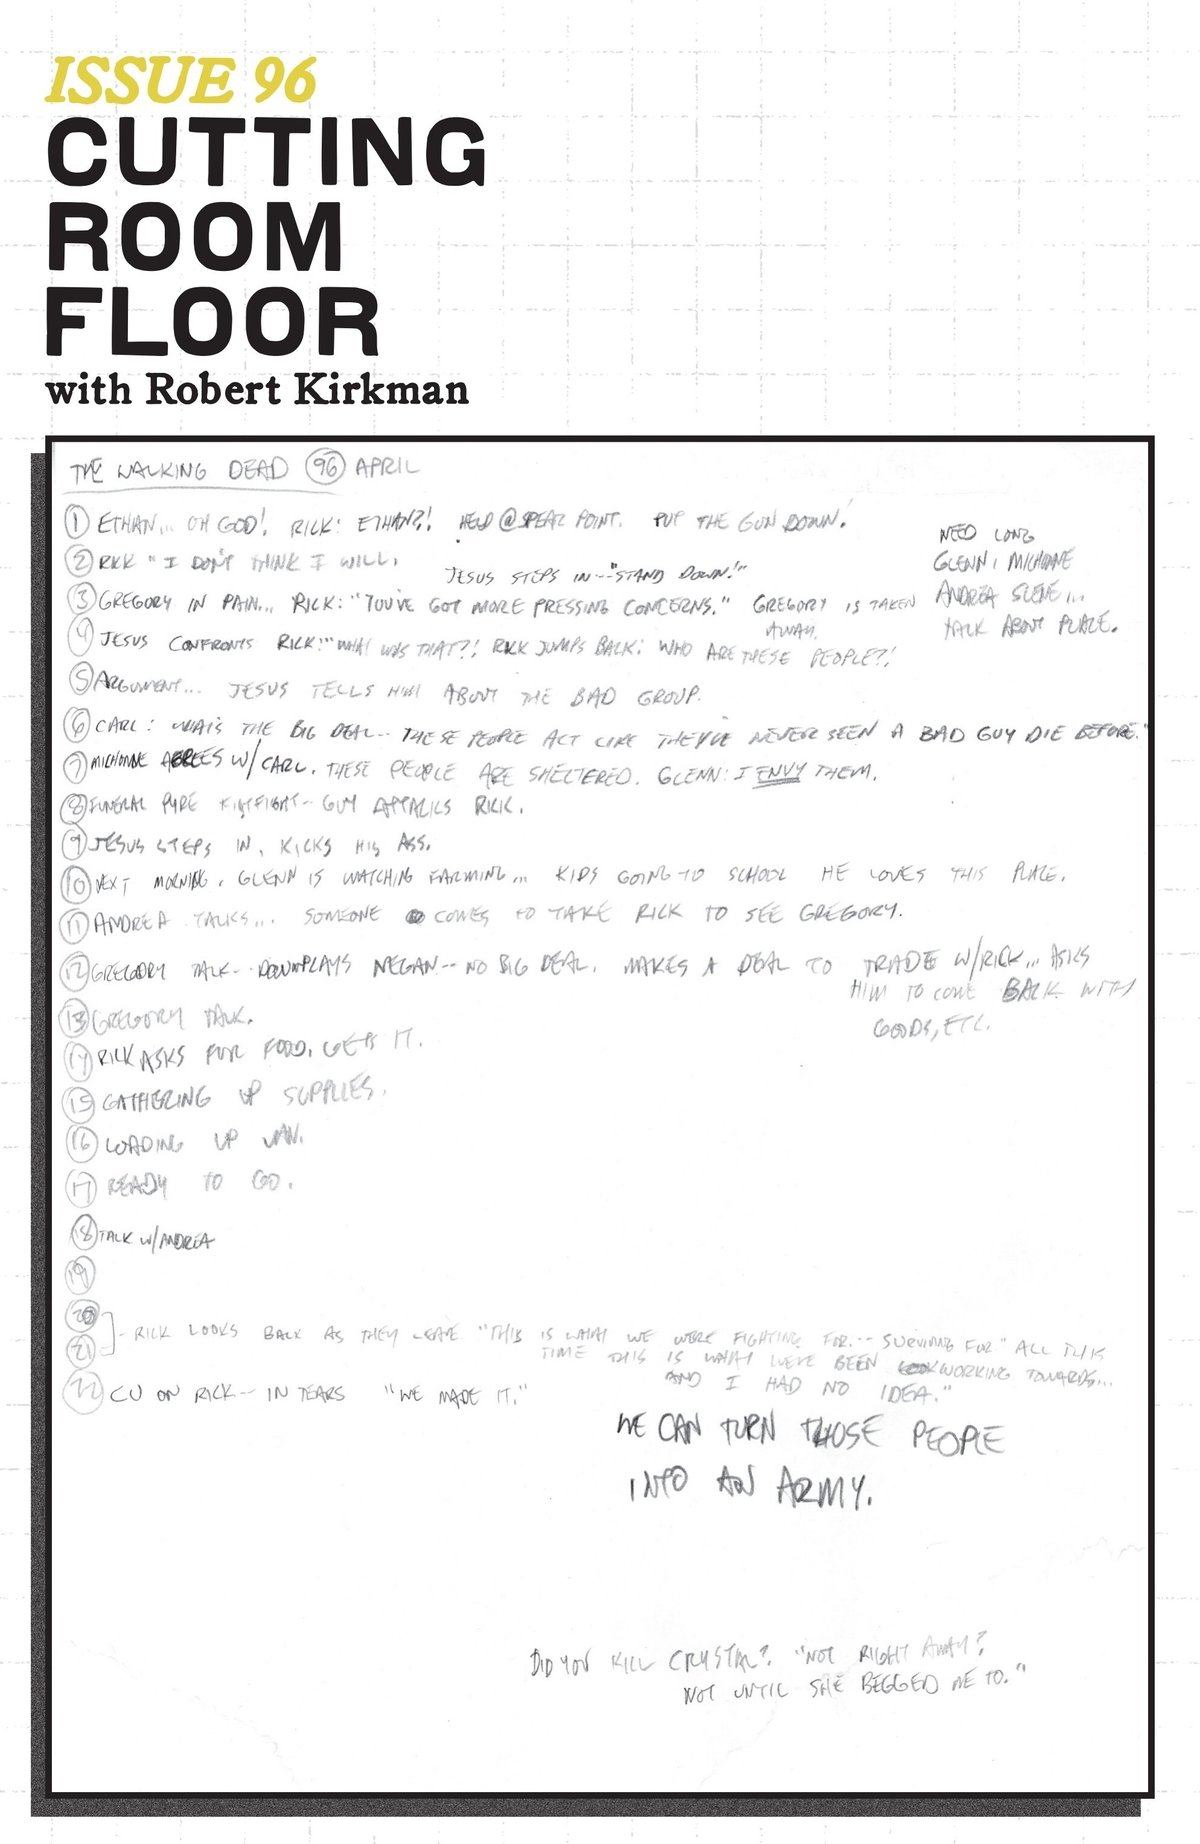 ISSUE 96
CUTTING
ROOM
FLOOR
with Robert Kirkman
THE WALKING DEAD 96 APRIL
1 ETHAN... OH GOD! RICK: ETHAN?! HELD @ SPEAR POINT. PUT THE GUN DOWN!
2 RICK "I DON'T THINK I WILL.
JESUS STEPS IN--"STAND DOWN!"
3 GREGORY IN PAIN... RICK: "YOU'VE GOT MORE PRESSING CONCERNS." GREGORY IS TAKEN
AWAY.
NEED LONG
GLENN, MICHONNE
ANDREA SCENE...
TALK ABOUT PLACE.
4 JESUS CONFRONTS RICK: "WHAT WAS THAT?! RICK JUMPS BACK: WHO ARE THESE PEOPLE?!
5 ARGUMENT... JESUS TELLS HIM ABOUT THE BAD GROUP.
6 CARL: WHAT'S THE BIG DEAL-- THESE PEOPLE ACT LIKE THEY'VE NEVER SEEN A BAD GUY DIE BEFORE."
7 MICHONNE AGREES W/ CARL. THESE PEOPLE ARE SHELTERED. GLENN: I ENVY THEM.
8 FUNERAL PYRE FISTFIGHT-- GUY ATTACKS RICK.
9 JESUS STEPS IN, KICKS HIS ASS.
10 NEXT MORNING, GLENN IS WATCHING FARMING... KIDS GOING TO SCHOOL HE LOVES THIS PLACE.
11 ANDREA TALKS... SOMEONE COMES TO TAKE RICK TO SEE GREGORY.
12 GREGORY TALK-- DOWNPLAYS NEGAN-- NO BIG DEAL. MAKES A DEAL TO TRADE W/RICK... ASKS
HIM TO COME BACK WITH
GOODS, ETC.
13 GREGORY TALK.
14 RICK ASKS FOR FOOD. GETS IT.
15 GATHERING UP SUPPLIES.
16 LOADING UP VAN.
17 READY TO GO.
18 TALK W/ANDREA
19
20
21
- RICK LOOKS BACK AS THEY LEAVE "THIS IS WHAT WE WERE FIGHTING FOR... SURVIVING FOR" ALL THIS
TIME THIS IS WHAT WE'VE BEEN WORKING TOWARDS...
AND I HAD NO IDEA."
22 CU ON RICK-- IN TEARS "WE MADE IT."
WE CAN TURN THOSE PEOPLE
INTO AN ARMY.
DID YOU KILL CRYSTAL? "NOT RIGHT AWAY?
NOT UNTIL SHE BEGGED ME TO."